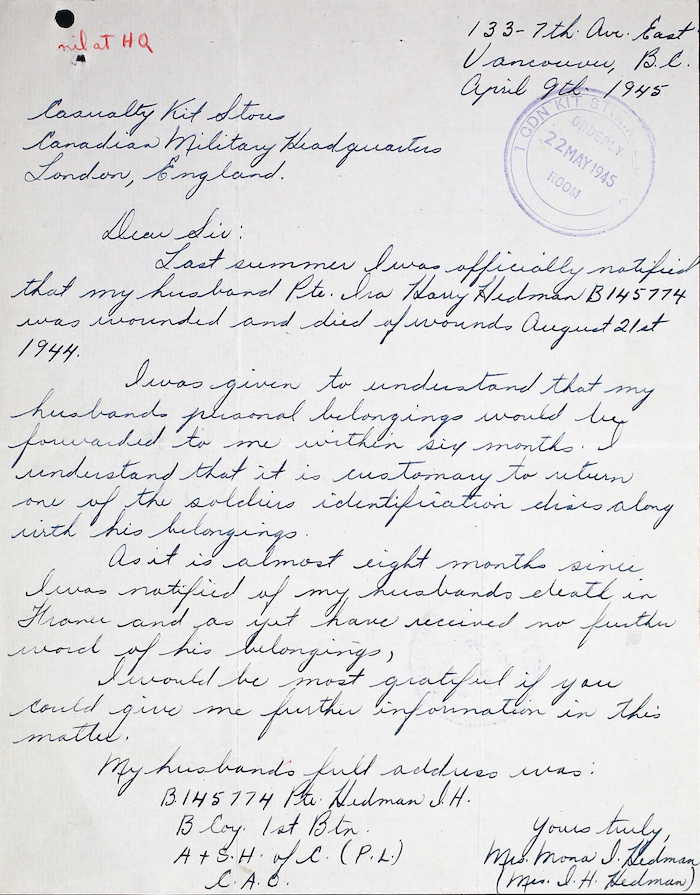 nil at HQ
133-7th. Ave. East
Vancouver, B.C.
April 9th. 1945
Casualty Kit Stores
Canadian Military Headquarters
London, England.
1 CDN KIT
ORDERLY
22 MAY 1945
ROOM
Dear Sir:
Last summer I was officially notified
that my husband Pte. Ira Harry Hedman B145774
was wounded and died of wounds August 21st
1944.
I was given to understand that my
husbands personal belongings would be
forwarded to me within six months. I
understand that it is customary to return
one of the soldiers identification discs along
with his belongings.
As it is almost eight months since
I was notified of my husbands death in
France and as yet have received no further
word of his belongings,
I would be most grateful if you
could give me further information in this
matter.
My husbands full address was:
B145774 Pte. Hedman I.H.
B Coy. 1st Btn.
A + S.H. of C. (P.L.)
C.A.O.
Yours truly,
Mrs. Mona I. Hedman
(Mrs. I. H. Hedman)